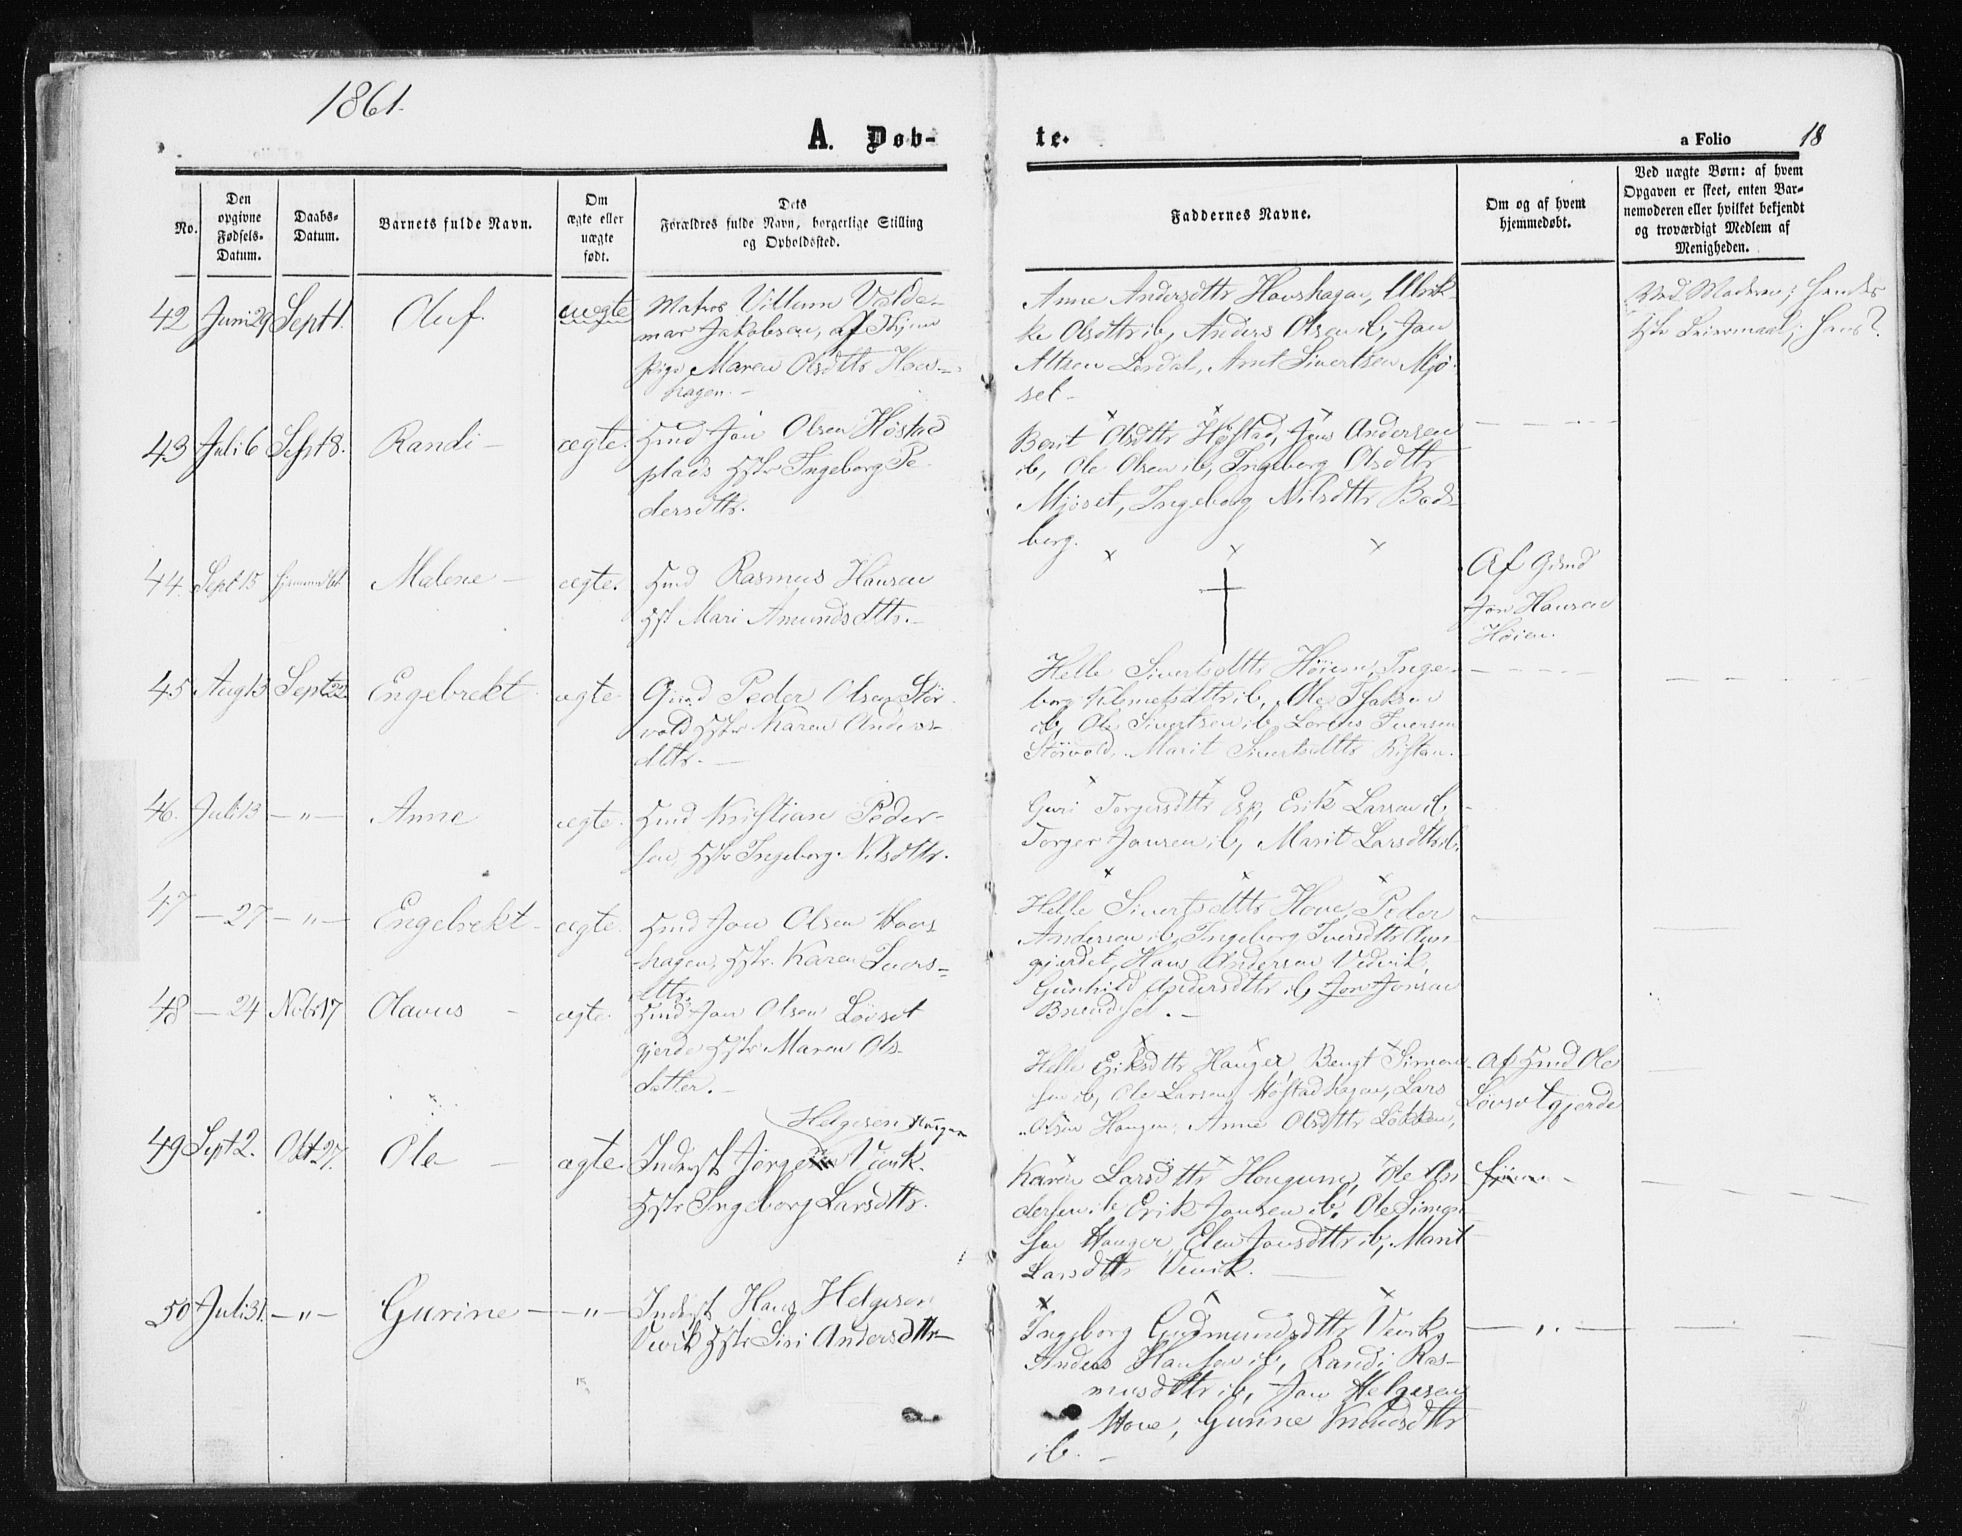 1861.
A. Døb-
te.
a Folio 18
No.
Den opgivne Fødsels-Datum.
Daabs-Datum.
Barnets fulde Navn.
Om ægte eller uægte født.
Dets Forældres fulde Navn, borgerlige Stilling og Opholdssted.
Faddernes Navne.
Om og af hvem hjemmedøbt.
Ved uægte Børn: af hvem Opgaven er skeet, enten Barnemoderen eller hvilket bekjendt og troværdigt Medlem af Menigheden.
42 Juni 29 Sept 1. Oluf. uægte
Matros Villum Valde-
mar Jakobsen, af
pige Maren Olsdttr Hovs-
hagen. -
Anne Andersdttr Hovshagen, Ulrik-
ke Olsdttr ib, Anders Olsen ib, Jon
Lerdal, Arnt Sivertsen Mjø-
set -
Ved Moderen; hendes
Leiermaal; hans ?
43 Juli 6 Sept 8. Randi - ægte.
Hmd Jon Olsen Høstad
plads Hstr Ingeborg Pe-
dersdttr.
Berit Olsdttr Høstad, Jens Andersen
ib, Ole Olsen ib, Ingeborg Olsdttr
Mjøset, Ingeborg Nilsdttr Bods-
berg.
44. Sept 15 hjemmedøbt Malene - ægte.
Hmd Rasmus Hansen
Hst Mari Amundsdttr. -
Af Grmd
Jon Hansen
Høien.
45 Aug 13 Sept 22 Engebrekt ægte
Gmd Peder Olsen Stør-
vold Hstr Karen Anders-
dttr. -
Helle Sivertsdttr Høiem, Inge-
borg Klemetsdttr ib, Ole Isaksen
ib, Ole Sivertsen ib, Lorens Iversen
Størvold, Marit Sivertsdttr Ristan.
46. Juli 13 - " - Anne ægte.
Hmd Kristian Peder-
sen, Hstr Ingeborg Nilsdttr.
Guri Torgersdttr Esp, Erik Larsen ib,
Torger Jonsen ib, Marit Larsdttr ib.
47 - 27 - " - Engebrekt - ægte.
Hmd Jon Olsen Hovs
hagen, Hstr. Karen Ivers-
dttr.
Helle Sivertsdttr Hove, Peder
Andersen ib, Ingeborg Iversdttr
gjerdet, Hans Andersen Vedvik,
Gunhild Andersdttr ib, Jon Jonsen
48 - 24 Nob. 17 Olavus - ægte.
Hmd Jon Olsen Løvset
gjerde Hstr Maren Ols-
datter. -
Helle Eriksdttr Hauger, Bengt Simon-
sen ib, Ole Larsen Høstadhagen, Lars
Olsen Haugen, Anne Olsdttr Løkken,
Af Hmd Ole
Løvsetgjerde
49 Sept 2. Okt 27. Ole - ægte.
Helgesen Haugum
Inderst Jørgen Vivik.
Hstr Ingeborg Larsdttr.
Karen Larsdttr Hougum, Ole An
dersen ib Erik Jonsen ib, Ole Simon-
sen Hauger, Elen Jonsdttr ib, Marit
Larsdttr Vevik. -
50 Juli 31. - " - Gurine - " -
Inderst Hans Helgesen
Vevik Hstr Siri Andersdttr -
Ingeborg Gudmundsdttr Vevik,
Anders Hansen ib, Randi Ras-
musdttr ib, Jon Helgesen
Hove, Gurine Knudsdttr
ib. -